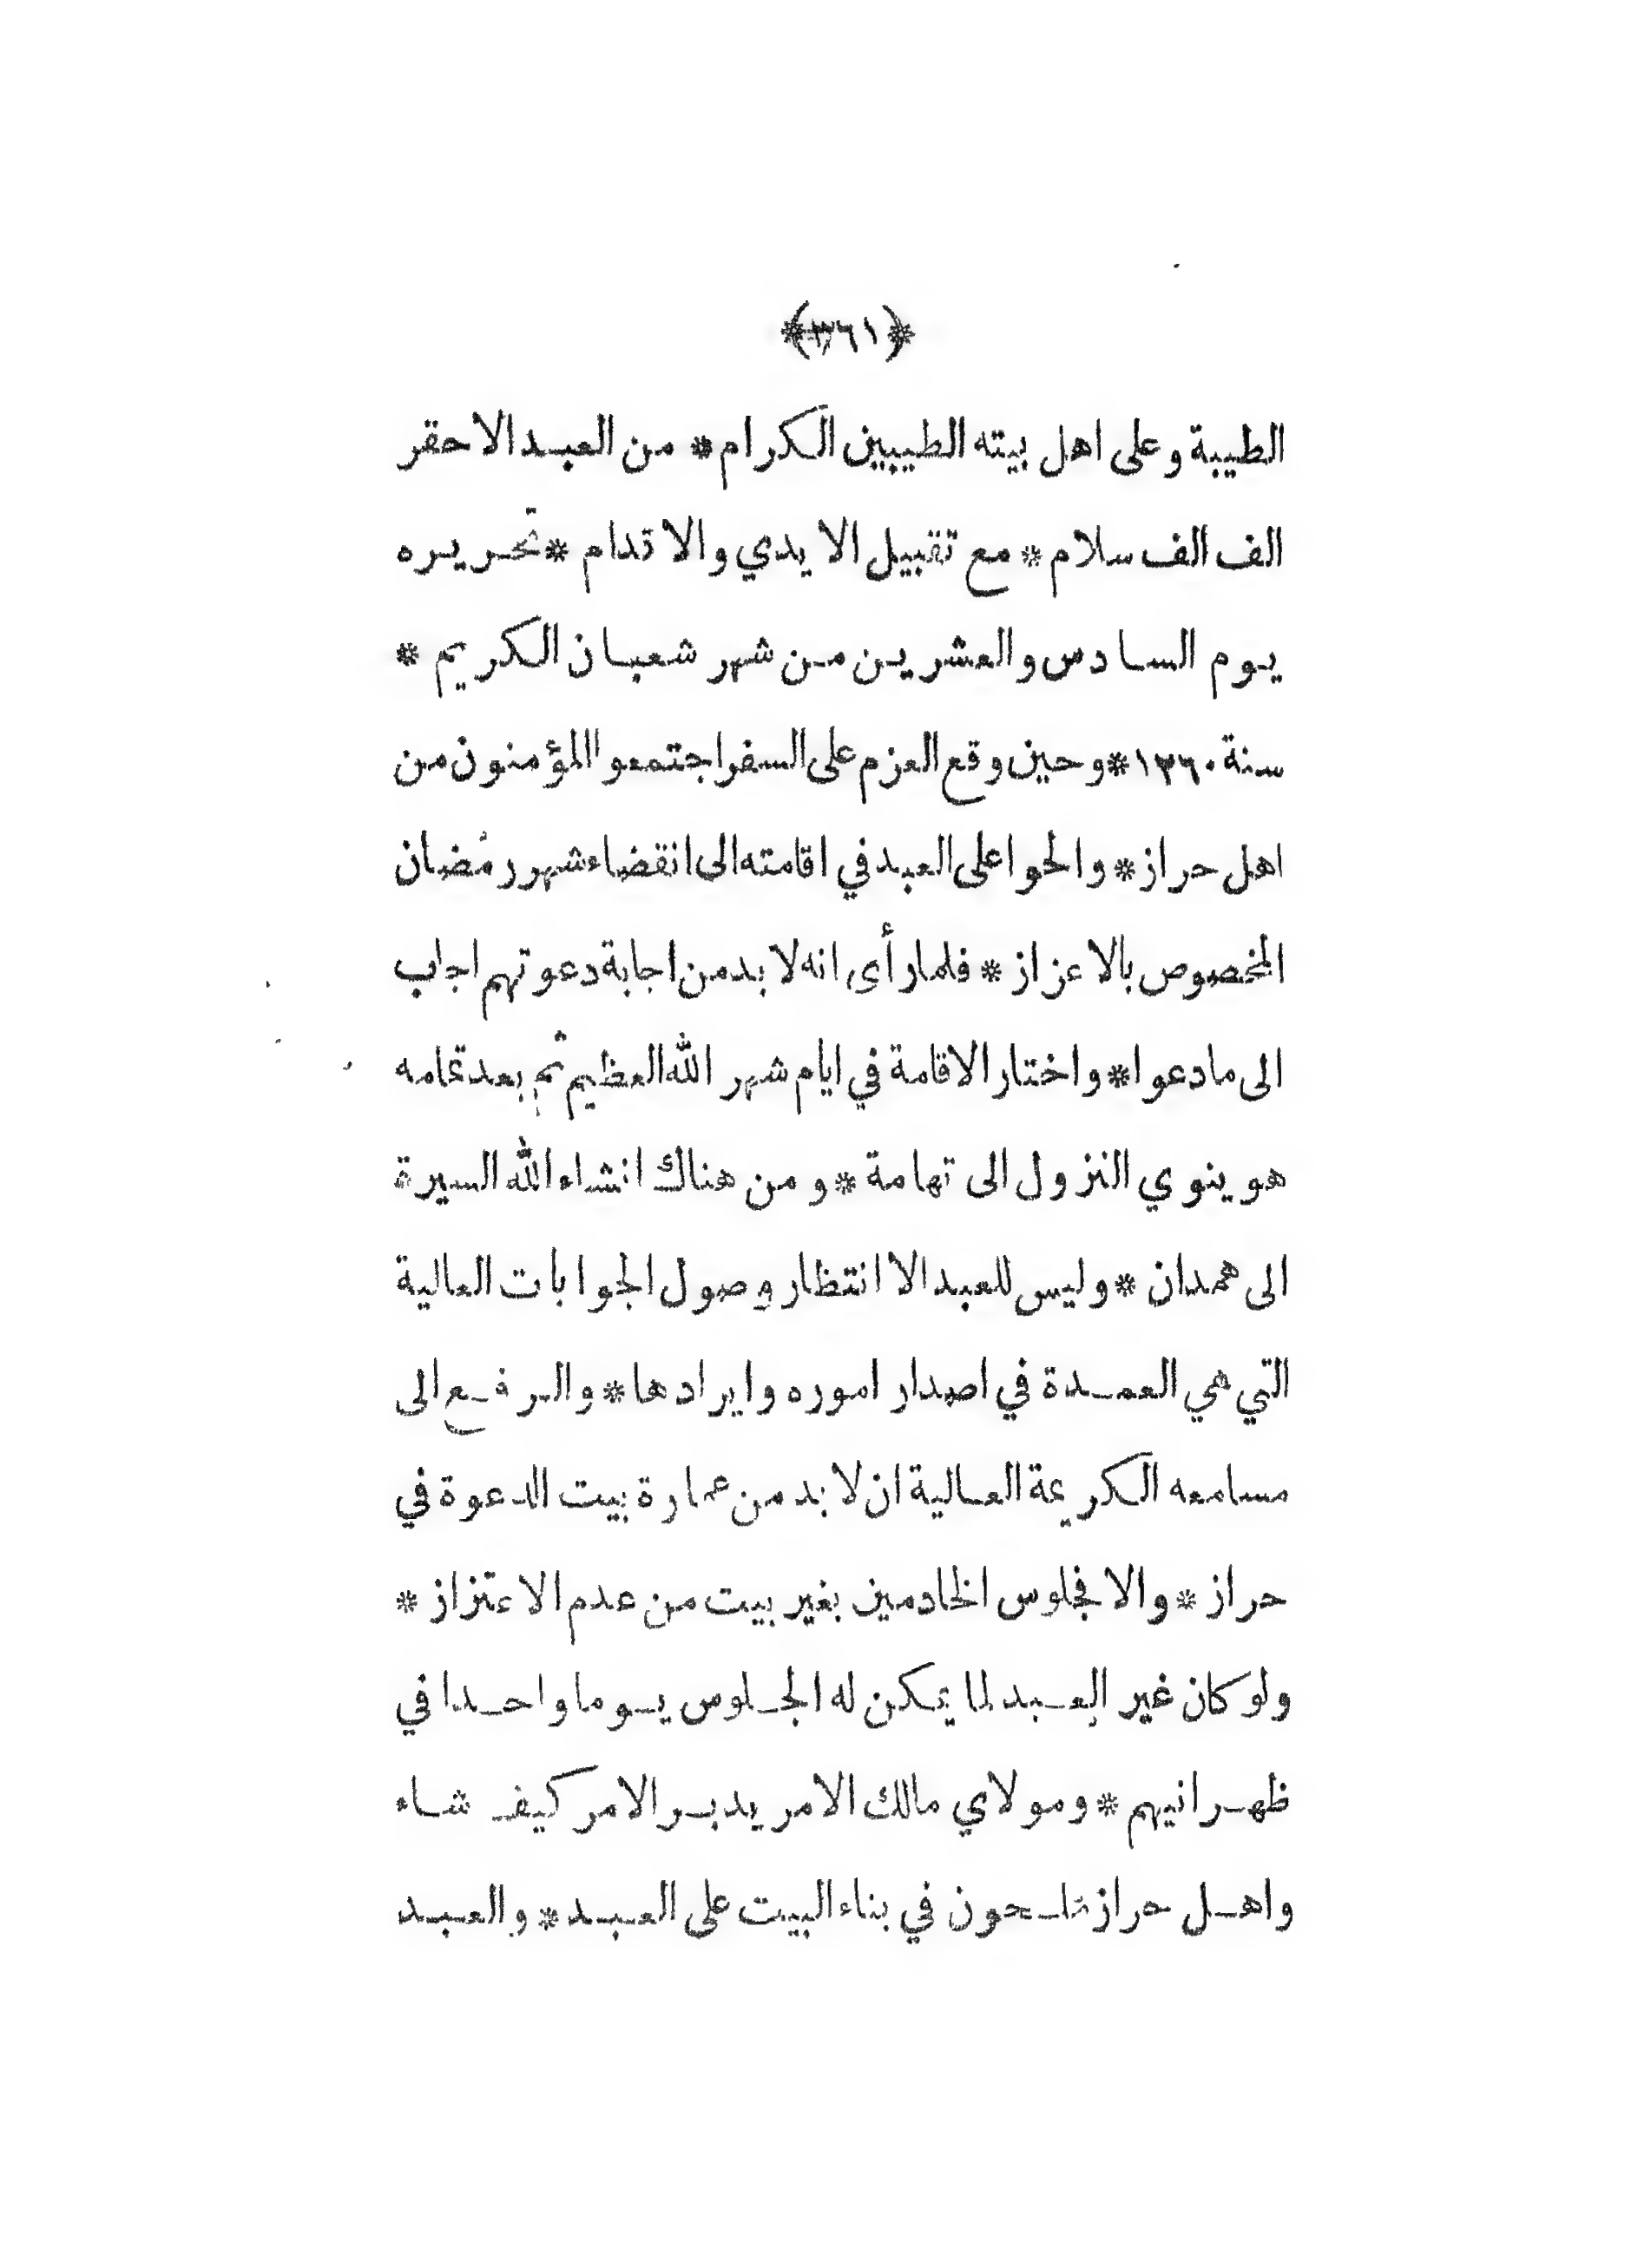 ﴿٣٦١﴾
الطيبة وعلى اهل بيته الطيبين الكرام * من العبد الاحقر
الف الف سلام * مع تقبيل الايدي والاقدام * تحريره
يوم السادس والعشرين من شهر شعبان الكريم *
سنة ١٣٦٠ * وحين وقع العزم على السفر اجتمعوا المؤمنون من
اهل حراز * والحوا على العبد في اقامته الى انقضاء شهر رمضان
المخصوص بالاعزاز * فلما رأى انه لا بد من اجابة دعوتهم اجاب
الى ما دعوا * واختار الاقامة في ايام شهر الله العظيم ثم بعد تمامه
هو ينوي النزول الى تهامة * ومن هناك انشاء الله السيرة
الى همدان * وليس للعبد الا انتظار وصول الجوابات العالية
التي هي العمدة في اصدار اموره وايرادها * والرفع الى
مسامعه الكريمة العالية ان لا بد من عمارة بيت الدعوة في
حراز * والا فجلوس الخادمين بغير بيت من عدم الاعتزاز *
ولو كان غير العبد لما يمكن له الجلوس يوما واحدا في
ظهرانيهم * ومولاي مالك الامر يدبر الامر كيف شاء
واهل حراز حون في بناء البيت على العبد * والعبد